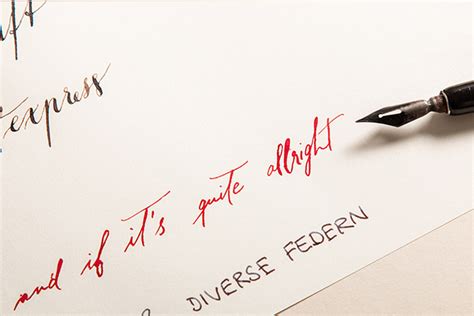 express
and if it's quite allright
DIVERSE FEDERN